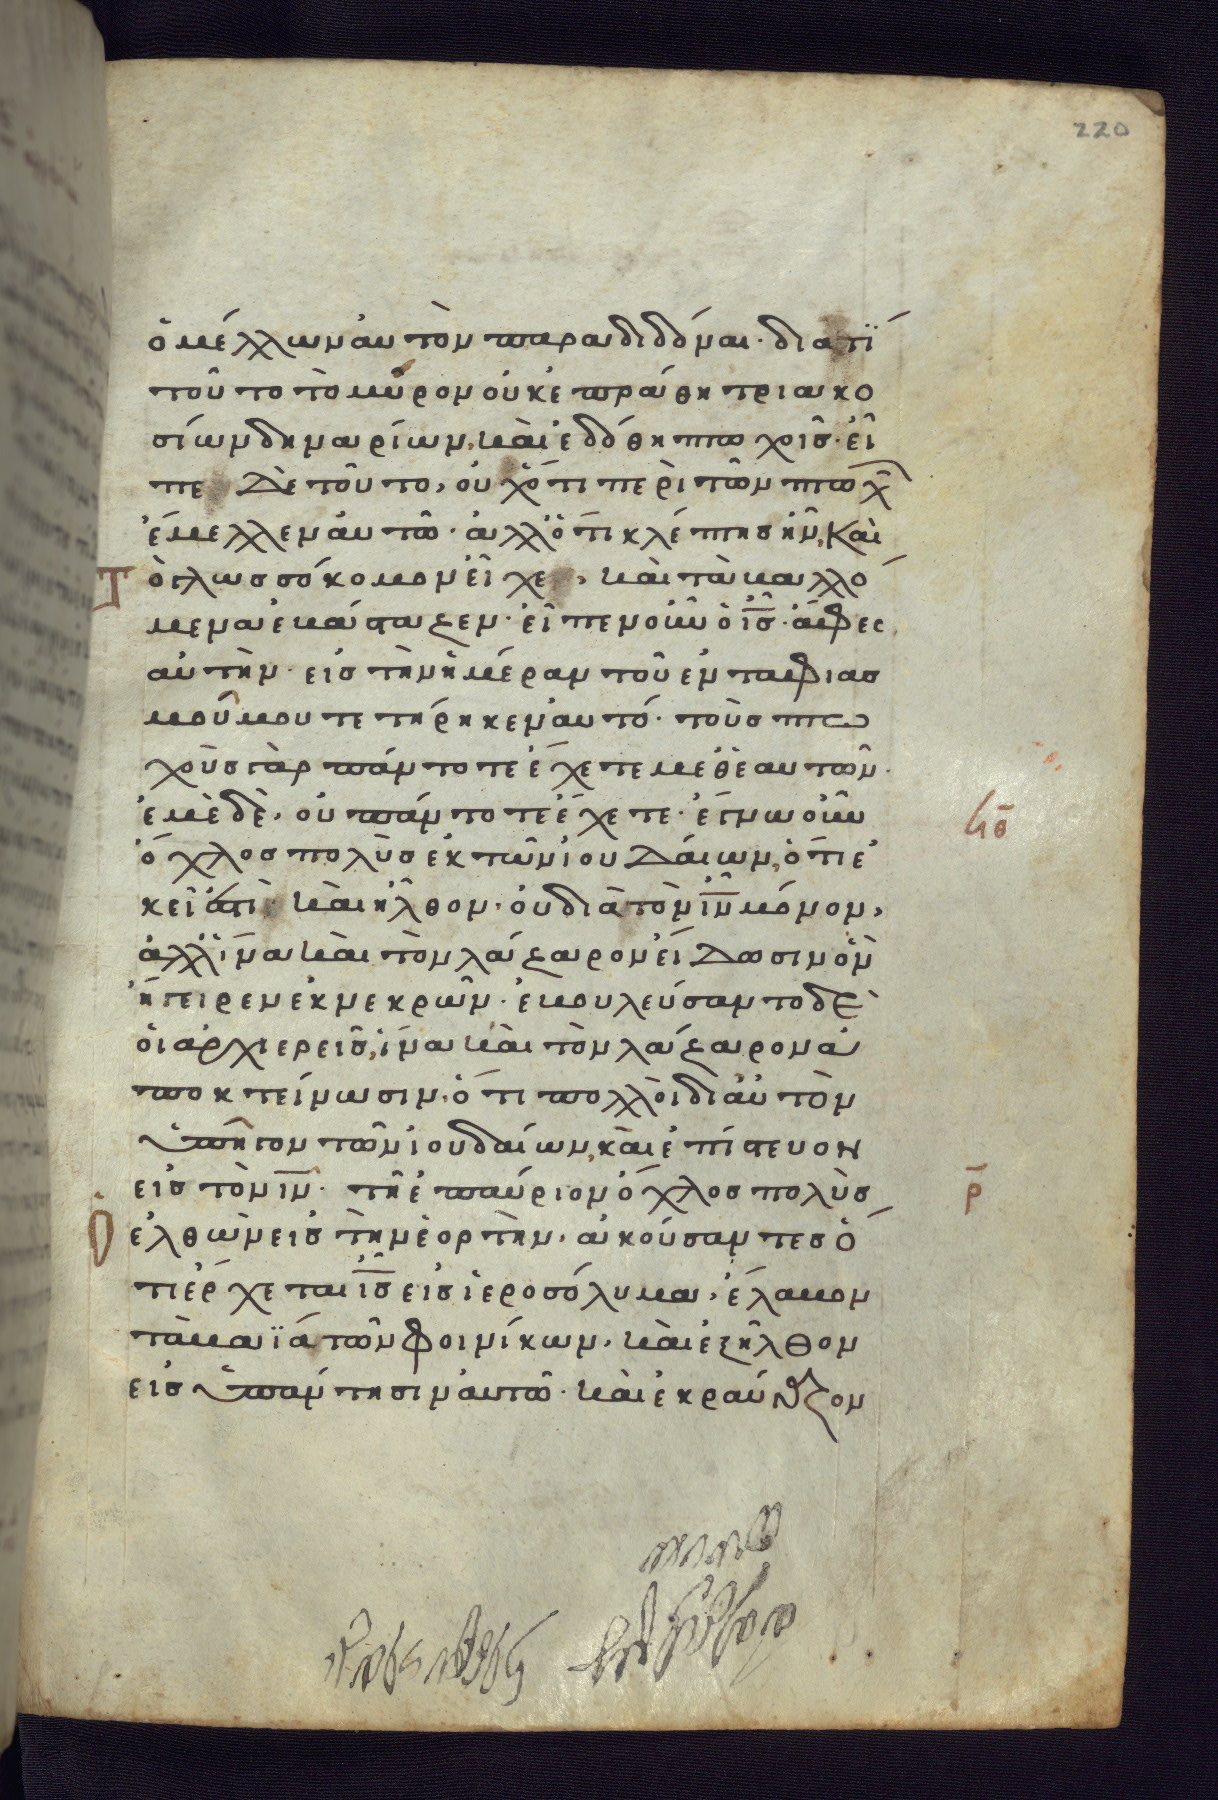 220
ὁ μέλλων αὐτὸν παραδιδόναι· διατί
τοῦτο τὸ μύρον οὐκ ἐπράθη τριακο
σίων δηναρίων, καὶ ἐδόθη πτωχοῖς· εἶ
πε δὲ τοῦτο, οὐχ ὅτι περὶ τῶν πτωχῶν
ἔμελλεν αὐτῷ· ἀλλ' ὅτι κλέπτης ἦν, καὶ
τὸ γλωσσόκομον εἶχε, καὶ τὰ βαλλό
μενα ἐβάσταζεν· εἶπεν οὖν ὁ ι̅ς̅· ἄφες
αὐτήν· εἰς τὴν ἡμέραν τοῦ ἐνταφιασ
μοῦ μου τετήρηκεν αὐτό· τοὺς πτω
χοὺς γὰρ πάντοτε ἔχετε μεθ' ἑαυτῶν·
ἐμὲ δὲ, οὐ πάντοτε ἔχετε· ἔγνω οὖν
ὄχλος πολὺς ἐκ τῶν ἰουδαίων, ὅτι ἐ
κεῖ ἐστι· καὶ ἦλθον· οὐ διὰ τὸν ι̅ν̅ μόνον,
ἀλλ' ἵνα καὶ τὸν λάζαρον εἴδωσιν ὃν
ἤγειρεν ἐκ νεκρῶν· ἐβουλεύσαντο δὲ
οἱ ἀρχιερεῖς, ἵνα καὶ τὸν λάζαρον ἀ
ποκτείνωσιν, ὅτι πολλοὶ δι' αὐτὸν
ὑπῆγον τῶν ἰουδαίων, καὶ ἐπίστευον
εἰς τὸν ι̅ν̅· τῇ ἐπαύριον ὄχλος πολὺς
ὁ ἐλθὼν εἰς τὴν ἑορτὴν, ἀκούσαντες ὅ
τι ἔρχεται ι̅ς̅ εἰς ἱεροσόλυμα, ἔλαβον
τὰ βαΐα τῶν φοινίκων, καὶ ἐξῆλθον
εἰς ὑπάντησιν αὐτῷ· καὶ ἐκραύγαζον
ρ̅